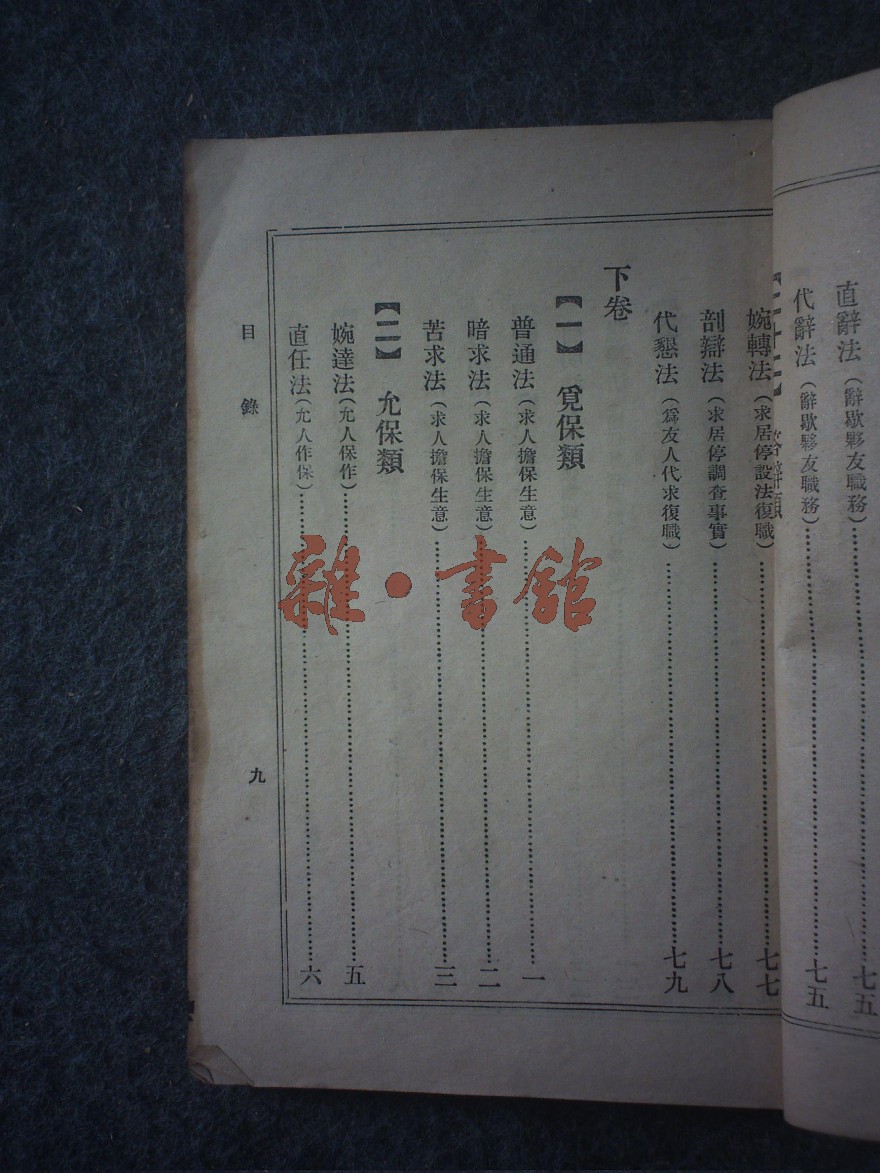 直辭法（辭歇夥友職務）……七五
代辭法（辭歇夥友職務）……七五
婉轉法（求居停設法復職）……七七
剖辯法（求居停調查事實）……七八
代懇法（爲友人代求復職）……七九
下卷
【一】 覓保類
普通法（求人擔保生意）……一
暗求法（求人擔保生意）……二
苦求法（求人擔保生意）……三
【二】 允保類
婉達法（允人保作）……五
直任法（允人作保）……六
目錄
九
雜·書館